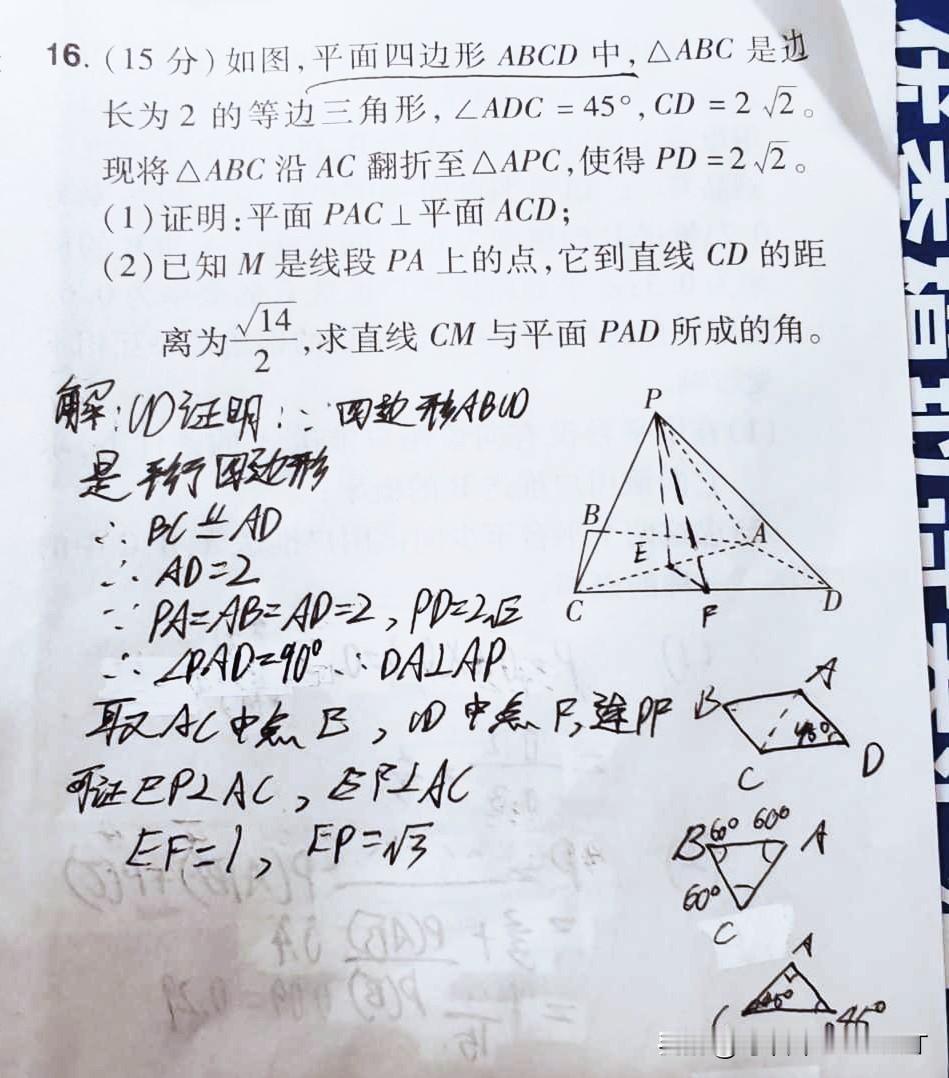 16. (15 分) 如图, 平面四边形 ABCD 中, △ABC 是边
长为 2 的等边三角形, ∠ADC = 45°, CD = 2√2。
现将 △ABC 沿 AC 翻折至 △APC, 使得 PD = 2√2。
(1) 证明: 平面 PAC ⊥ 平面 ACD;
(2) 已知 M 是线段 PA 上的点, 它到直线 CD 的距
离为 √14/2, 求直线 CM 与平面 PAD 所成的角。
解: (1) 证明: ∵ 四边形ABCD
是平行四边形
∴ BC ∥= AD
∴ AD=2
∵ PA=AB=AD=2, PD=2√2
∴ ∠PAD=90° ∴ DA⊥AP
取 AC 中点 E, CD 中点 F, 连 PF
可证 EP⊥AC, EF⊥AC
EF=1, EP=√3
P
B
E
A
C
F
D
B
A
45°
C
D
B 60° 60° A
60°
C
A
45°
C
45°